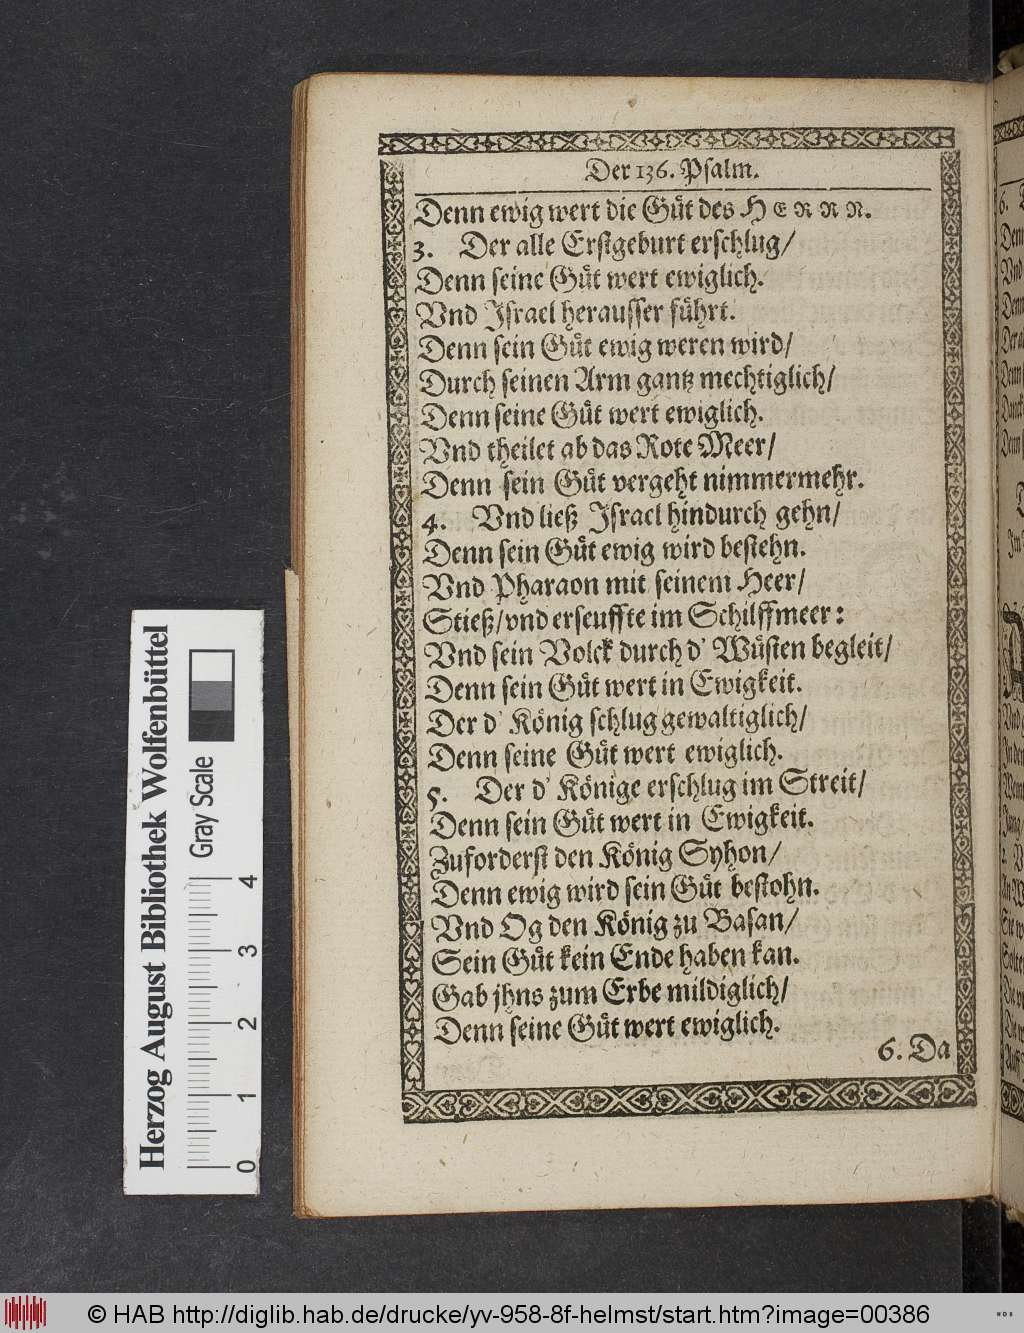 Der 136. Psalm.
Denn ewig wert die Guͤt des HERRN.
3. Der alle Erstgeburt erschlug/
Denn seine Guͤt wert ewiglich.
Vnd Israel herausser fuͤhrt.
Denn sein Guͤt ewig weren wird/
Durch seinen Arm gantz mechtiglich/
Denn seine Guͤt wert ewiglich.
Vnd theilet ab das Rote Meer/
Denn sein Guͤt vergeht nimmermehr.
4. Vnd ließ Israel hindurch gehn/
Denn sein Guͤt ewig wird bestehn.
Vnd Pharaon mit seinem Heer/
Stieß/vnd erseuffte im Schilffmeer:
Vnd sein Volck durch d' Wuͤsten begleit/
Denn sein Guͤt wert in Ewigkeit.
Der d' Koͤnig schlug gewaltiglich/
Denn seine Guͤt wert ewiglich.
5. Der d' Koͤnige erschlug im Streit/
Denn sein Guͤt wert in Ewigkeit.
Zuforderst den Koͤnig Syhon/
Denn ewig wird sein Guͤt bestohn.
Vnd Og den Koͤnig zu Basan/
Sein Guͤt kein Ende haben kan.
Gab jhns zum Erbe mildiglich/
Denn seine Guͤt wert ewiglich.
6. Da
Herzog August Bibliothek Wolfenbüttel
Gray Scale
0 1 2 3 4
© HAB http://diglib.hab.de/drucke/yv-958-8f-helmst/start.htm?image=00386